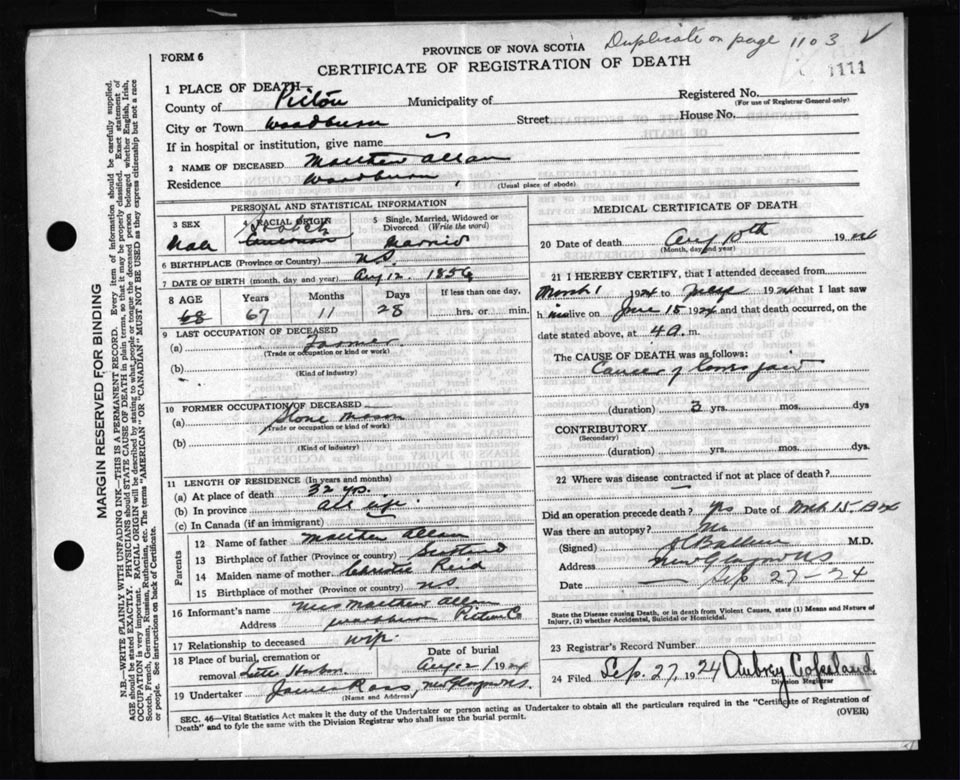 PROVINCE OF NOVA SCOTIA Duplicate on page 1103 √
FORM 6
CERTIFICATE OF REGISTRATION OF DEATH 1111
1 PLACE OF DEATH—
County of Pictou Municipality of Registered No.
(For use of Registrar General only)
City or Town Woodburn Street House No.
If in hospital or institution, give name
2 NAME OF DECEASED Matthew Allan
Residence Woodburn, (Usual place of abode)
PERSONAL AND STATISTICAL INFORMATION
3 SEX 4 RACIAL ORIGIN 5 Single, Married, Widowed or Divorced (Write the word)
Male Scotch Married
6 BIRTHPLACE (Province or Country) N.S.
7 DATE OF BIRTH (month, day and year) Aug 12. 1856
8 AGE Years Months Days If less than one day,
68 67 11 28 hrs. or min.
9 LAST OCCUPATION OF DECEASED
(a) Farmer
(Trade or occupation or kind or work)
(b)
(Kind of industry)
10 FORMER OCCUPATION OF DECEASED
(a) Stone Mason
(Trade or occupation or kind of work)
(b)
(Kind of industry)
11 LENGTH OF RESIDENCE (In years and months)
(a) At place of death 32 yrs.
(b) In province all life
(c) In Canada (if an immigrant)
Parents
12 Name of father Matthew Allan
13 Birthplace of father (Province or country) Scotland
14 Maiden name of mother Christie Reid
15 Birthplace of mother (Province or country) N S
16 Informant's name Mrs Matthew Allan
Address Woodburn Pictou Co
17 Relationship to deceased wife.
18 Place of burial, cremation or Date of burial
removal Little Harbor Aug 12/1924
19 Undertaker James Ross, New Glasgow N.S.
(Name and Address)
MEDICAL CERTIFICATE OF DEATH
20 Date of death Aug 10th 1924
(Month, day and year)
21 I HEREBY CERTIFY, that I attended deceased from
March 1 1924 to 1924 that I last saw
h im alive on June 15 1924 and that death occurred, on the
date stated above, at 4 a. m.
The CAUSE OF DEATH was as follows:
Cancer of lower jaw
(duration) 3 yrs. mos. dys
CONTRIBUTORY
(Secondary)
(duration) yrs. mos. dys
22 Where was disease contracted if not at place of death?
Did an operation precede death? yes Date of Mch 15-1924
Was there an autopsy? No
(Signed) M.D.
Address New Glasgow NS
Date Sep 27-24
State the Disease causing Death, or in death from Violent Causes, state (1) Means and Nature of
Injury, (2) whether Accidental, Suicidal or Homicidal.
23 Registrar's Record Number
24 Filed Sep. 27, 1924 Aubrey Copeland
Division Registrar
SEC. 46—Vital Statistics Act makes it the duty of the Undertaker or person acting as Undertaker to obtain all the particulars required in the "Certificate of Registration of
Death" and to fyle the same with the Division Registrar who shall issue the burial permit. (OVER)
MARGIN RESERVED FOR BINDING
N.B.—WRITE PLAINLY WITH UNFADING INK—THIS IS A PERMANENT RECORD. Every item of information should be carefully supplied.
AGE should be stated EXACTLY. PHYSICIANS should STATE CAUSE OF DEATH in plain terms, so that it may be properly classified. Exact statement of
OCCUPATION is very important. RACIAL ORIGIN will be described by stating to what people or tongue the deceased person belonged whether English, Irish,
Scotch, French, German, Russian, Ruthenian, etc. The terms "AMERICAN" or "CANADIAN" MUST NOT BE USED as they express citizenship but not a race
or people. See instructions on back of Certificate.